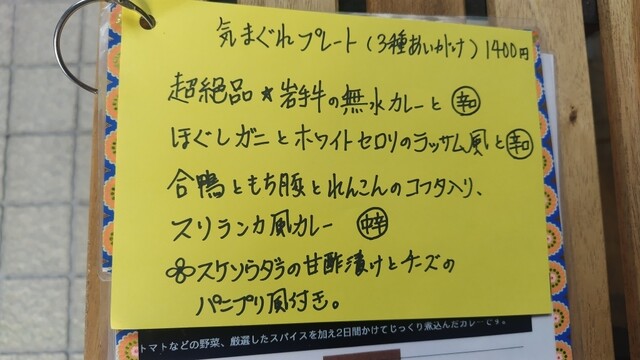 気まぐれプレート(3種あいがけ)1400円
超絶品★岩手牛の無水カレーと 辛
ほぐしガニとホワイトセロリのラッサム風と 和
合鴨ともち豚とれんこんのコフタ入り、
スリランカ風カレー 中辛
スケソウダラの甘酢漬けとチーズの
パニプリ風付き。
トマトなどの野菜、厳選したスパイスを加え2日間かけてじっくり煮込んだカレーです。